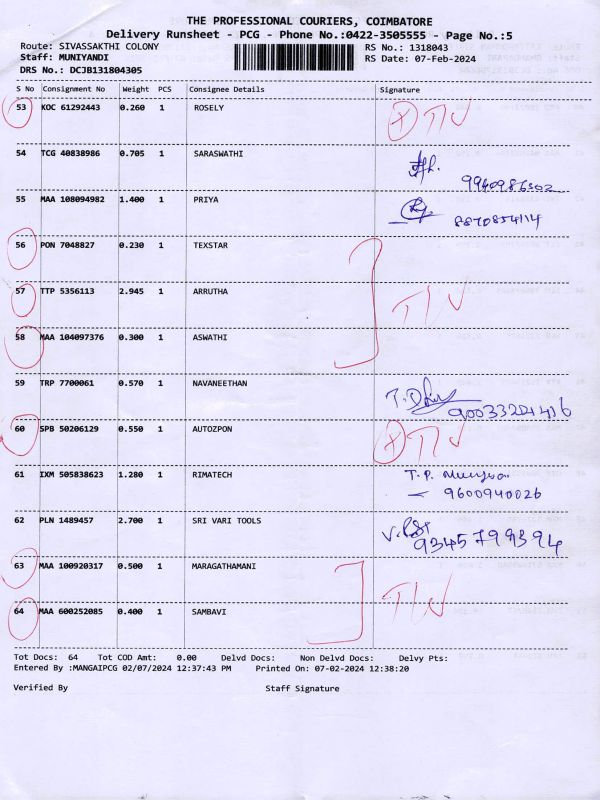 THE PROFESSIONAL COURIERS, COIMBATORE
Delivery Runsheet - PCG - Phone No.:0422-3505555 - Page No.:5
Route: SIVASSAKTHI COLONY RS No.: 1318043
Staff: MUNIYANDI RS Date: 07-Feb-2024
DRS No.: DCJB131804305
S No Consignment No Weight PCS Consignee Details Signature
53 KOC 61292443 0.260 1 ROSELY
54 TCG 40838986 0.705 1 SARASWATHI
55 MAA 108094982 1.400 1 PRIYA
8870854114
56 PON 7048827 0.230 1 TEXSTAR
57 TTP 5356113 2.945 1 ARRUTHA
58 MAA 104097376 0.300 1 ASWATHI
59 TRP 7700061 0.570 1 NAVANEETHAN
60 SPB 50206129 0.550 1 AUTOZPON
61 IXM 505838623 1.280 1 RIMATECH T.P.
9600940026
62 PLN 1489457 2.700 1 SRI VARI TOOLS
9345799394
63 MAA 100920317 0.500 1 MARAGATHAMANI
64 MAA 600252085 0.400 1 SAMBAVI
Tot Docs: 64 Tot COD Amt: 0.00 Delvd Docs: Non Delvd Docs: Delvy Pts:
Entered By :MANGAIPCG 02/07/2024 12:37:43 PM Printed On: 07-02-2024 12:38:20
Verified By Staff Signature